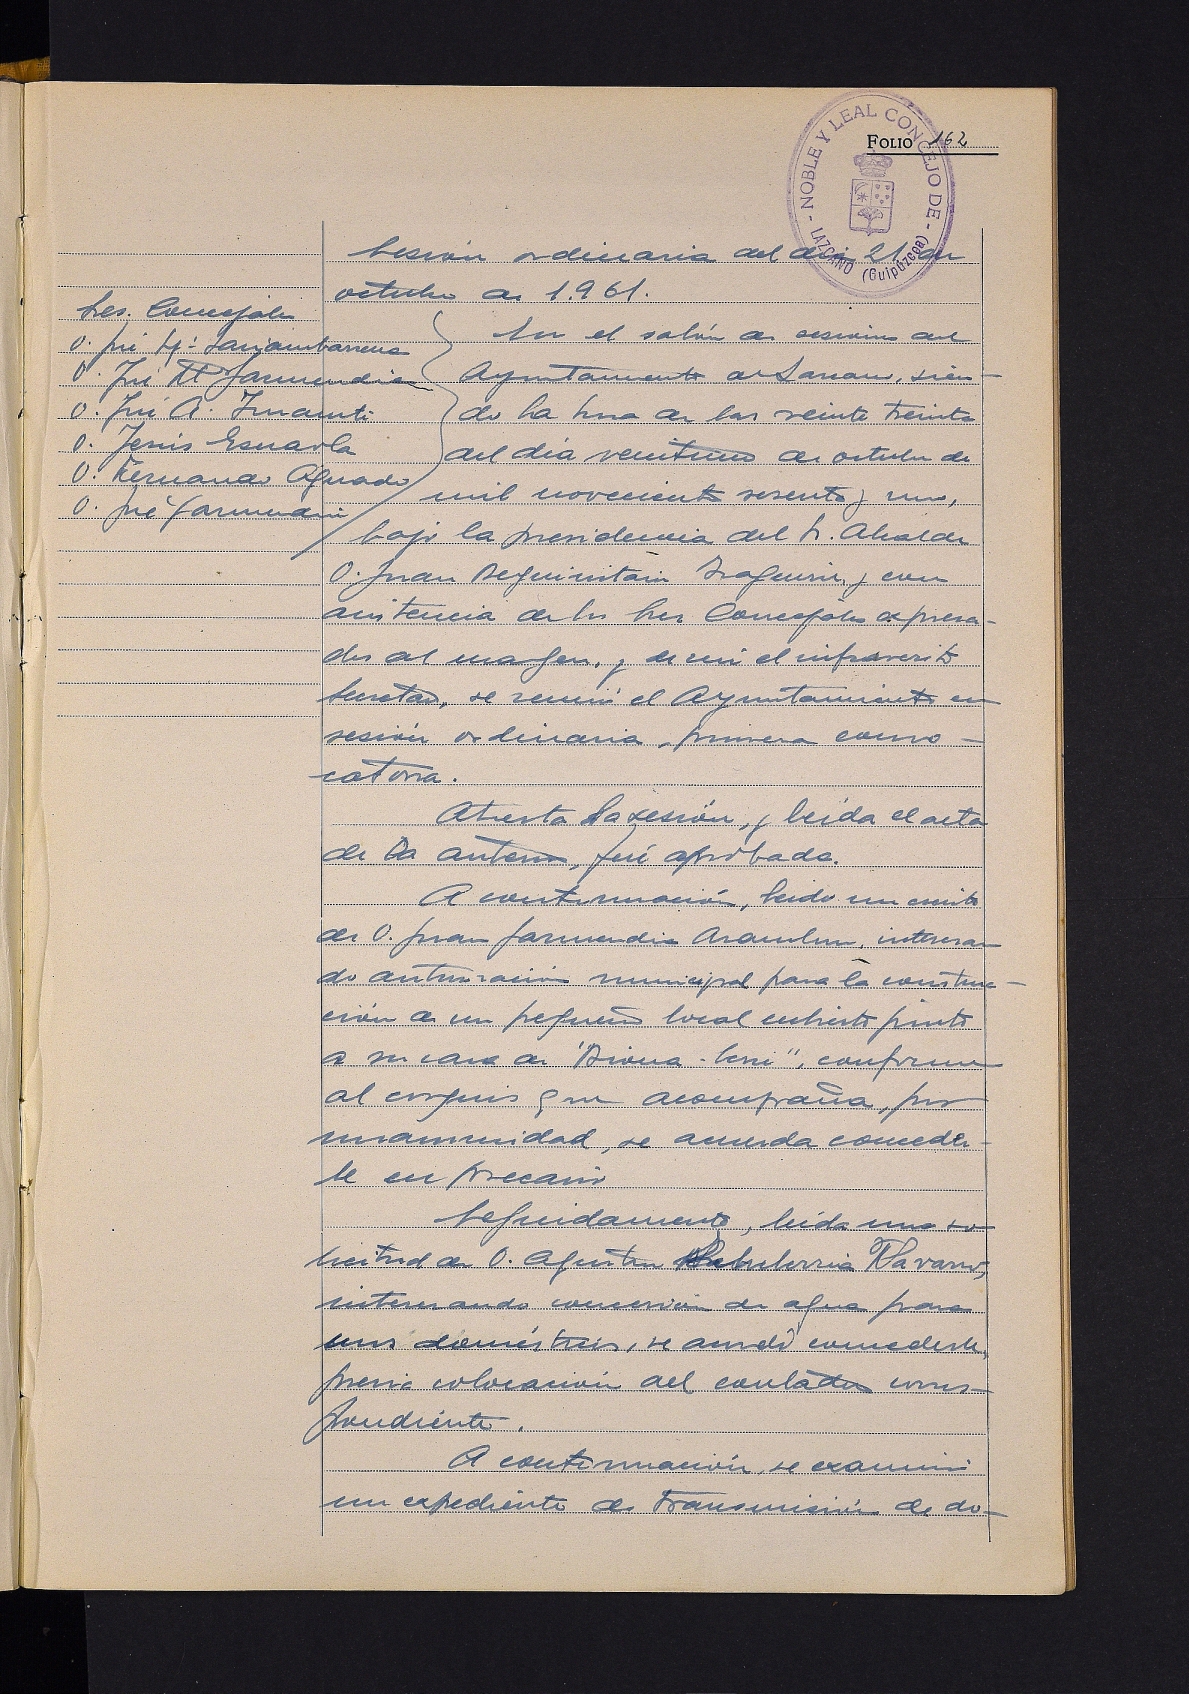 FOLIO 162
NOBLE Y LEAL CONCEJO DE
LAZCANO (Guipúzcoa)
Sesión ordinaria del día 21 de
octubre de 1.961.
Sres. Concejales
D. José Mª
D. José Mª Garmendia
D. José A. Imaz
D. Jesús
D. Fernando Aguado
D. José Garmendia
En el salón de sesiones del
Ayuntamiento de Lazcano, sien-
do la hora de las veinte treinta
del día veintiuno de octubre de
mil novecientos sesenta y uno,
bajo la presidencia del Sr. Alcalde
D. Juan Iraguren, y con
asistencia de los Sres Concejales expresa-
dos al margen, y de mi el infrascrito
Secretario, se reunió el Ayuntamiento en
sesión ordinaria, primera convo-
catoria.
Abierta la sesión, y leída el acta
de la anterior, fué aprobada.
A continuación, leído un escrito
de D. Juan Garmendia Aramburu, interesan
do autorización municipal para la construc-
ción de un pequeño local cubierto junto
a su casa de conforme
al croquis que acompaña, por
unanimidad, se acuerda conceder-
le en precario
Seguidamente, leída una so-
licitud de D. Agustín Navarro,
interesando concesión de agua para
usos domésticos, se acordó concederle,
previa colocación del contador corres-
pondiente.
A continuación, se examinó
un expediente de transmisión de do-